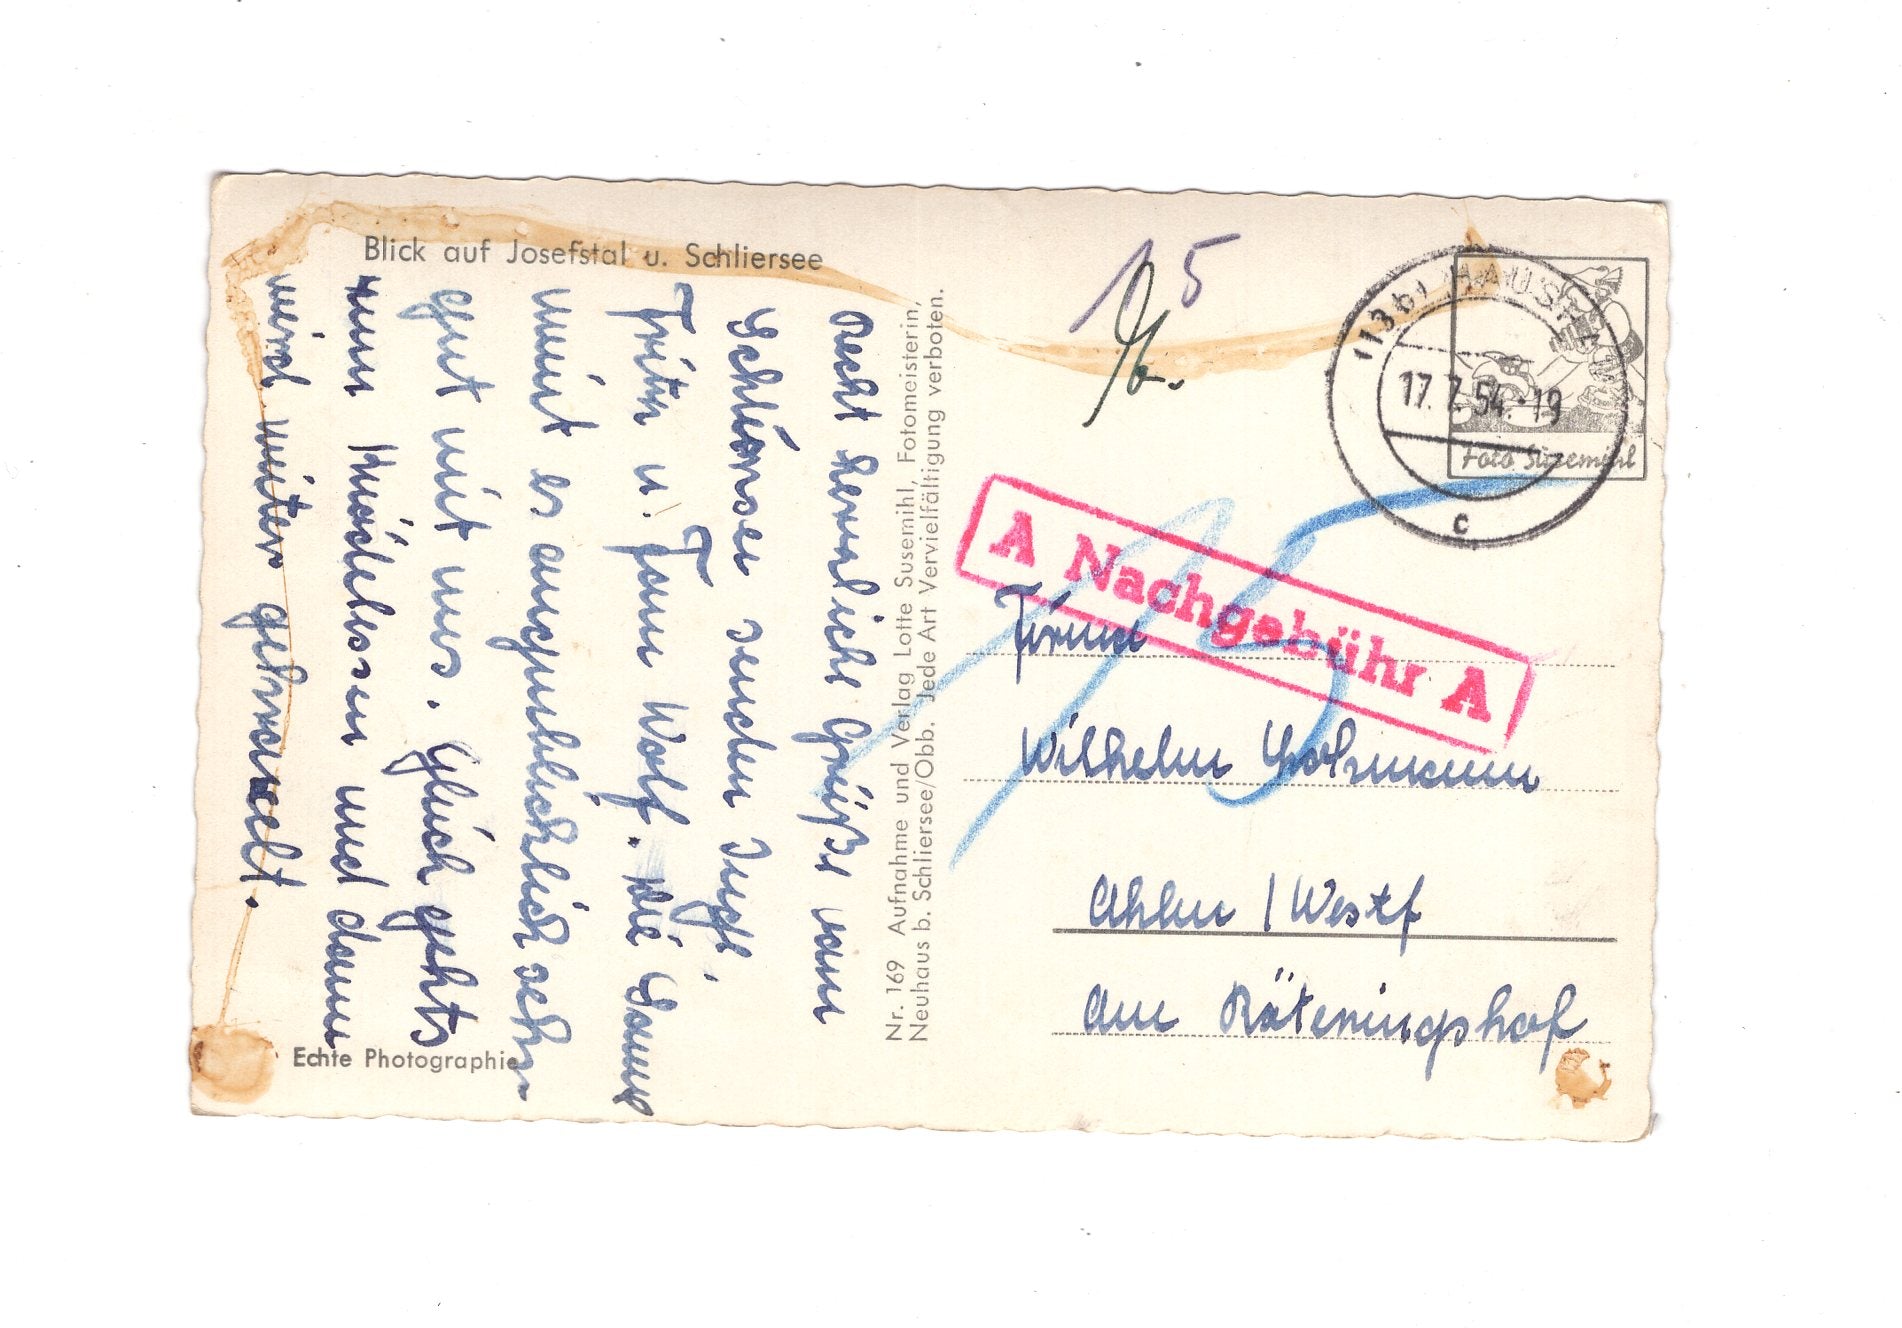 Blick auf Josefstal u. Schliersee
Recht herzliche Grüße vom
Schliersee senden Ingf,
Fritz u. Frau Wolf. Die Sonne
meint es augenblicklich sehr
gut mit uns. Gleich gehts
zum Mittelessen und dann
wird weiter gefaulenzt.
Echte Photographie
Nr. 169 Aufnahme und Verlag Lotte Susemihl, Fotomeisterin,
Neuhaus b. Schliersee/Obb. Jede Art Vervielfältigung verboten.
15
(13b) HAUSHAM
17.7.54.-19
c
Foto Susemihl
A Nachgebühr A
15
Firma
Wilhelm
Ahlen / Westf
Am Röteringshof